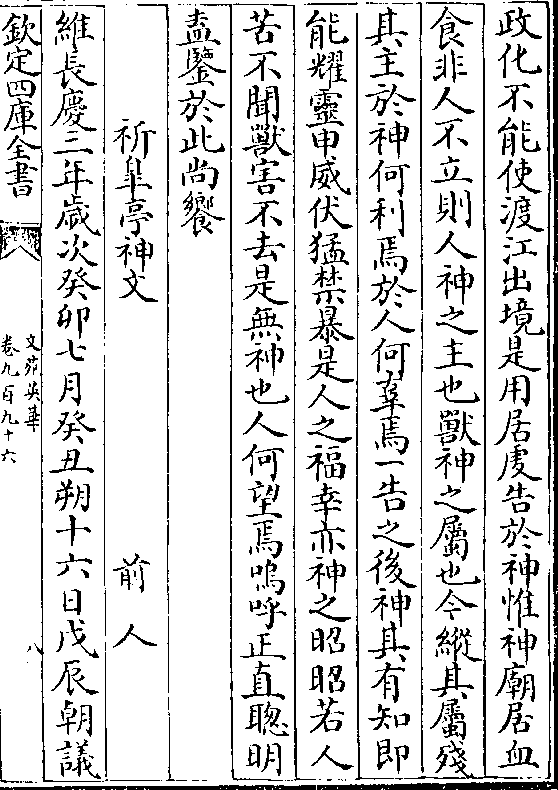 政化不能使渡江出境是用居處告於神惟神廟居血
食非人不立則人神之主也獸神之屬也今縱其屬殘
其主於神何利焉於人何辜焉一告之後神其有知即
能耀靈申威伏猛禁暴是人之福幸亦神之昭昭若人
苦不聞獸害不去是無神也人何望焉嗚呼正直聰明
盍鑒於此尚饗
祈臯亭神文 前人
維長慶三年歲次癸卯七月癸丑朔十六日戊辰朝議
欽定四庫全書
文苑英華
卷九百九十六
八